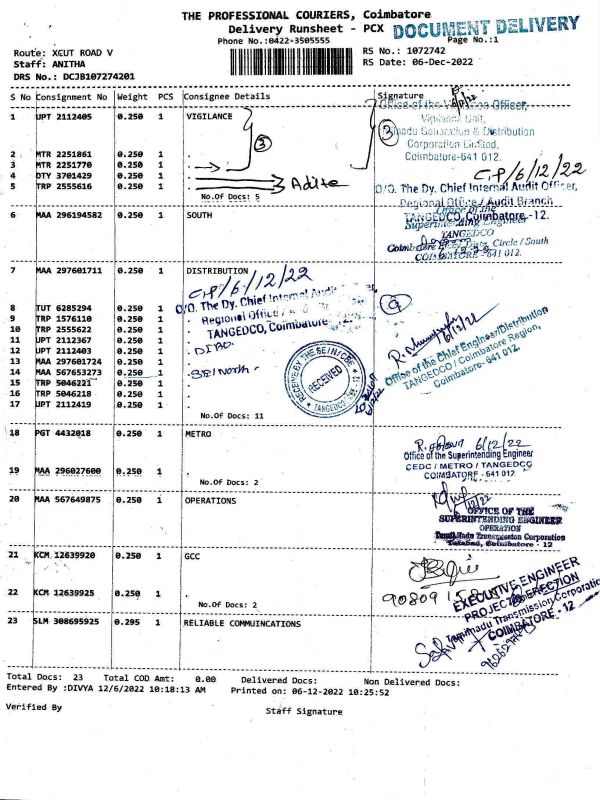 THE PROFESSIONAL COURIERS, Coimbatore
Delivery Runsheet - PCX DOCUMENT DELIVERY
Phone No.:0422-3505555 Page No.:1
Route: XCUT ROAD V RS No.: 1072742
Staff: ANITHA RS Date: 06-Dec-2022
DRS No.: DCJB107274201
S No Consignment No Weight PCS Consignee Details Signature
1 UPT 2112405 0.250 1 VIGILANCE
Vigilance Unit,
Corporation Limited,
Coimbatore-641 012.
3
3
2 MTR 2251861 0.250 1 .
3 MTR 2251770 0.250 1 .
4 DTY 3701429 0.250 1 .
5 TRP 2555616 0.250 1 .
C.P/6/12/22
O/O. The Dy. Chief Internal Audit Officer,
Regional Office / Audit Branch
TANGEDCO, Coimbatore.-12.
No.Of Docs: 5
6 MAA 296194582 0.250 1 SOUTH
Office of the
Superintending Engineer
TANGEDCO
Circle / South
COIMBATORE - 641 012.
7 MAA 297601711 0.250 1 DISTRIBUTION
C.P/6/12/22
O/O. The Dy. Chief Internal Audit
Regional Office /
TANGEDCO, Coimbatore.-12.
8 TUT 6285294 0.250 1 .
9 TRP 1576110 0.250 1 .
10 TRP 2555622 0.250 1 .
11 UPT 2112367 0.250 1 .
12 UPT 2112403 0.250 1 .
13 MAA 297601724 0.250 1 .
14 MAA 567653273 0.250 1 .
15 TRP 5046221 0.250 1 .
16 TRP 5046218 0.250 1 .
17 UPT 2112419 0.250 1 .
SE/North
RECEIVED
9
6/12/22
Office of the Chief Engineer/Distribution
TANGEDCO / Coimbatore Region,
Coimbatore-641 012.
No.Of Docs: 11
18 PGT 4432018 0.250 1 METRO
6/12/22
Office of the Superintending Engineer
CEDC / METRO / TANGEDCO
COIMBATORE - 641 012
19 MAA 296027600 0.250 1 .
No.Of Docs: 2
20 MAA 567649875 0.250 1 OPERATIONS
OFFICE OF THE
SUPERINTENDING ENGINEER
OPERATION
Tamil Nadu Transmission Corporation
Tatabad, Coimbatore - 12
21 KCM 12639920 0.250 1 GCC
22 KCM 12639925 0.250 1 .
No.Of Docs: 2
EXECUTIVE ENGINEER
PROJECT ERECTION
Tamilnadu Transmission Corporation
COIMBATORE - 12
23 SLM 308695925 0.295 1 RELIABLE COMMUINCATIONS
Total Docs: 23 Total COD Amt: 0.00 Delivered Docs: Non Delivered Docs:
Entered By :DIVYA 12/6/2022 10:18:13 AM Printed on: 06-12-2022 10:25:52
Verified By Staff Signature